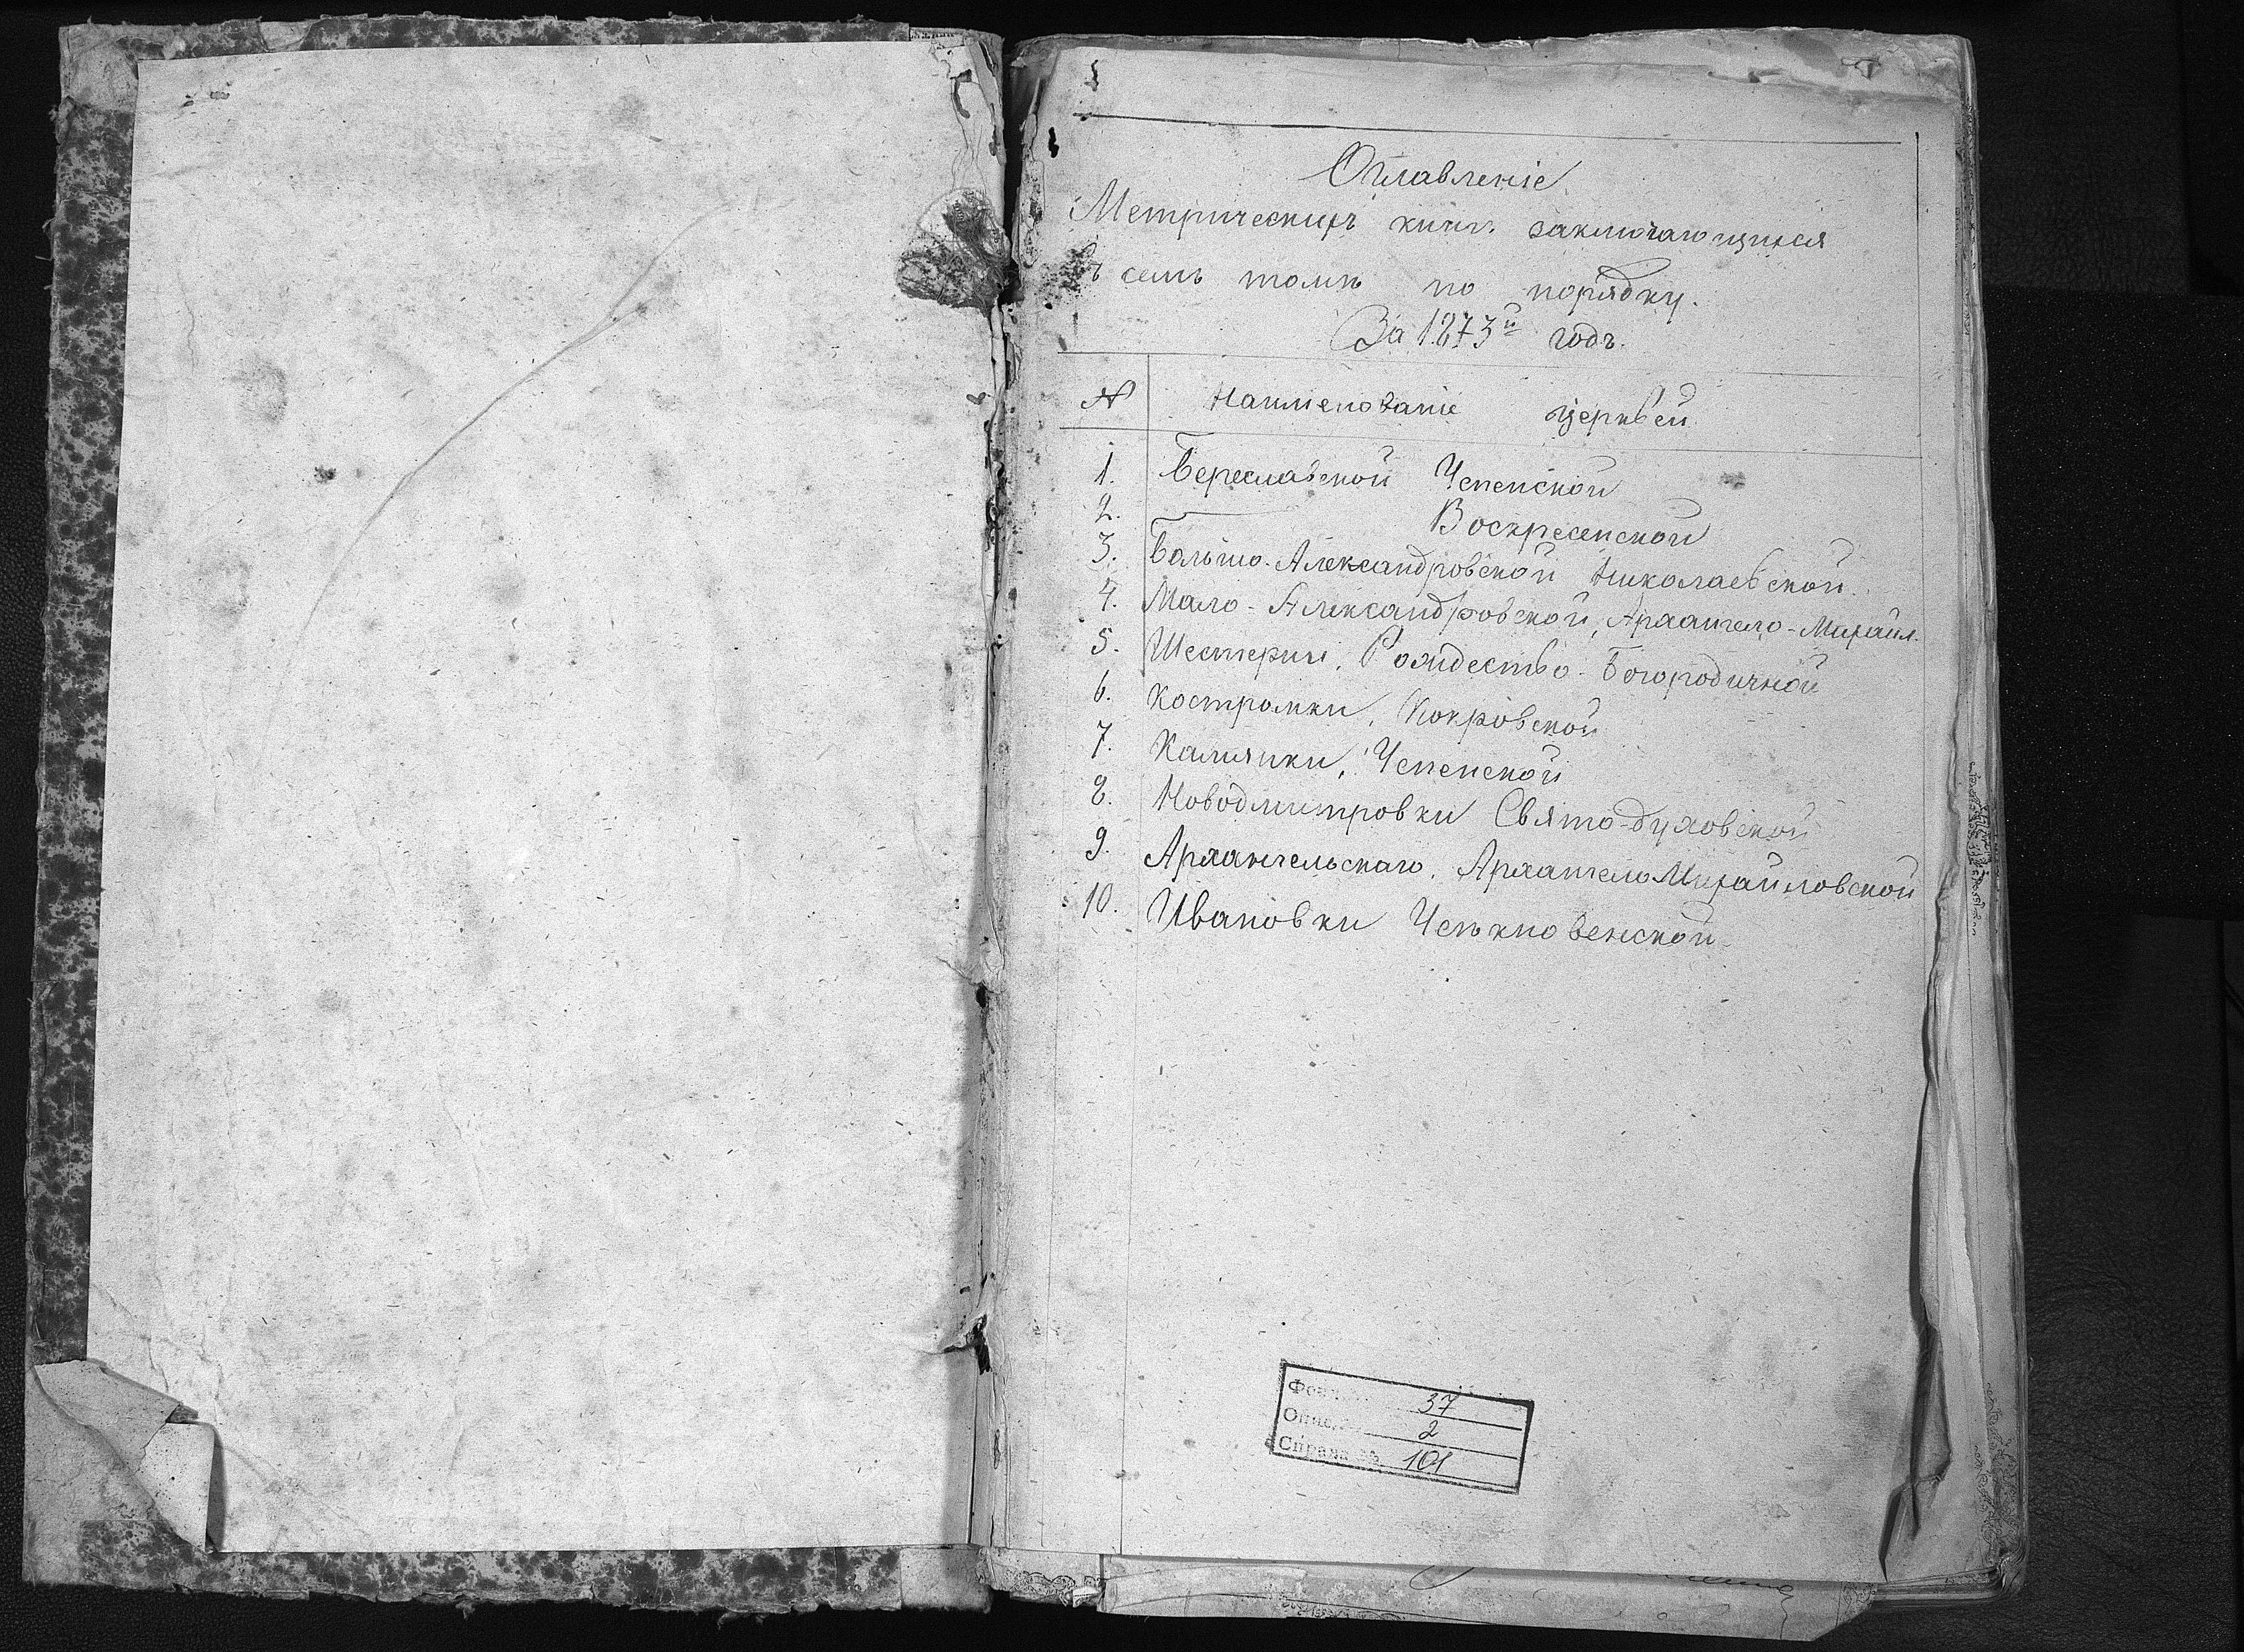 Оглавленіе
Метрическихъ книгъ заключающихся
въ семъ томѣ по порядку.
За 1873й годъ.
№ Наименованіе церквей
1. Береславской Успенской
2. Воскресенской
3. Больше-Александровской Николаевской.
4. Мало-Александровской, Архангело-Михайл.
5. Шестерни, Рождество-Богородичной
6. Костромки, Покровской
7. Калиянки, Успенской
8. Новодмитровки Свято-духовской
9. Архангельскаго, Архангело Михайловской
10. Ивановки Усѣкновенской
Фонд 37
Опис 2
Справа № 101